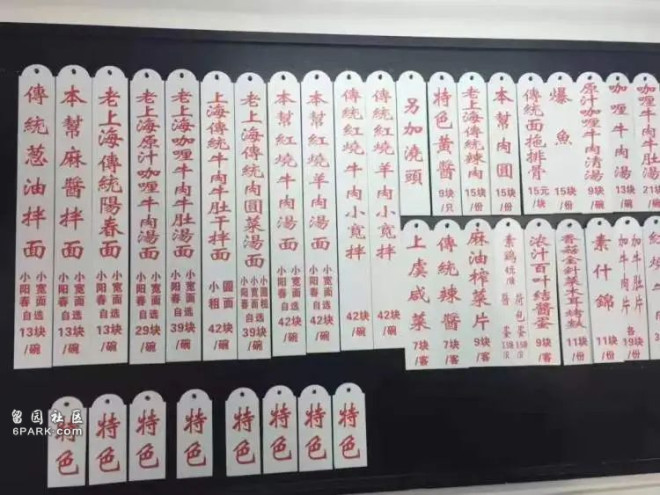 傳統葱油拌面
小宽面
小阳春自选
13块/碗
本幫麻醬拌面
小宽面
小阳春自选
13块/碗
老上海傳統陽春面
小宽面
小阳春自选
13块/碗
老上海原汁咖喱牛肉湯面
小宽面
小阳春自选
29块/碗
老上海咖喱牛肉牛肚湯面
小宽面
小阳春自选
39块/碗
上海傳統牛肉牛肚干拌面
圆面
小粗
42块/碗
老上海傳統肉圓菜湯面
小阳春自选
39块/碗
本幫紅燒牛肉湯面
小宽面
小阳春自选
42块/碗
本幫紅燒羊肉湯面
小宽面
小阳春自选
42块/碗
傳統紅燒牛肉小宽拌
42块/碗
傳統紅燒羊肉小宽拌
42块/碗
另加澆頭
特色黄醬
9块/只
老上海傳統辣肉
15块/份
本幫肉圓
15块/份
傳統面拖排骨
15元/块
爆魚
15块/份
原汁咖喱牛肉清湯
9块/碗
咖喱牛肉湯
13块/碗
咖喱牛肉牛肚湯
21块
上虞咸菜
7块/客
傳統辣醬
7块/客
麻油榨菜片
9块/客
素鷄
荷包蛋
浓汁百叶结醬蛋
9块/客
香菇金針菜木耳烤麩
11块/份
素什錦
11块/份
加牛肚片
加牛肉片
各19块/份
特色
特色
特色
特色
特色
特色
特色
特色
留园社区
6PARK.COM